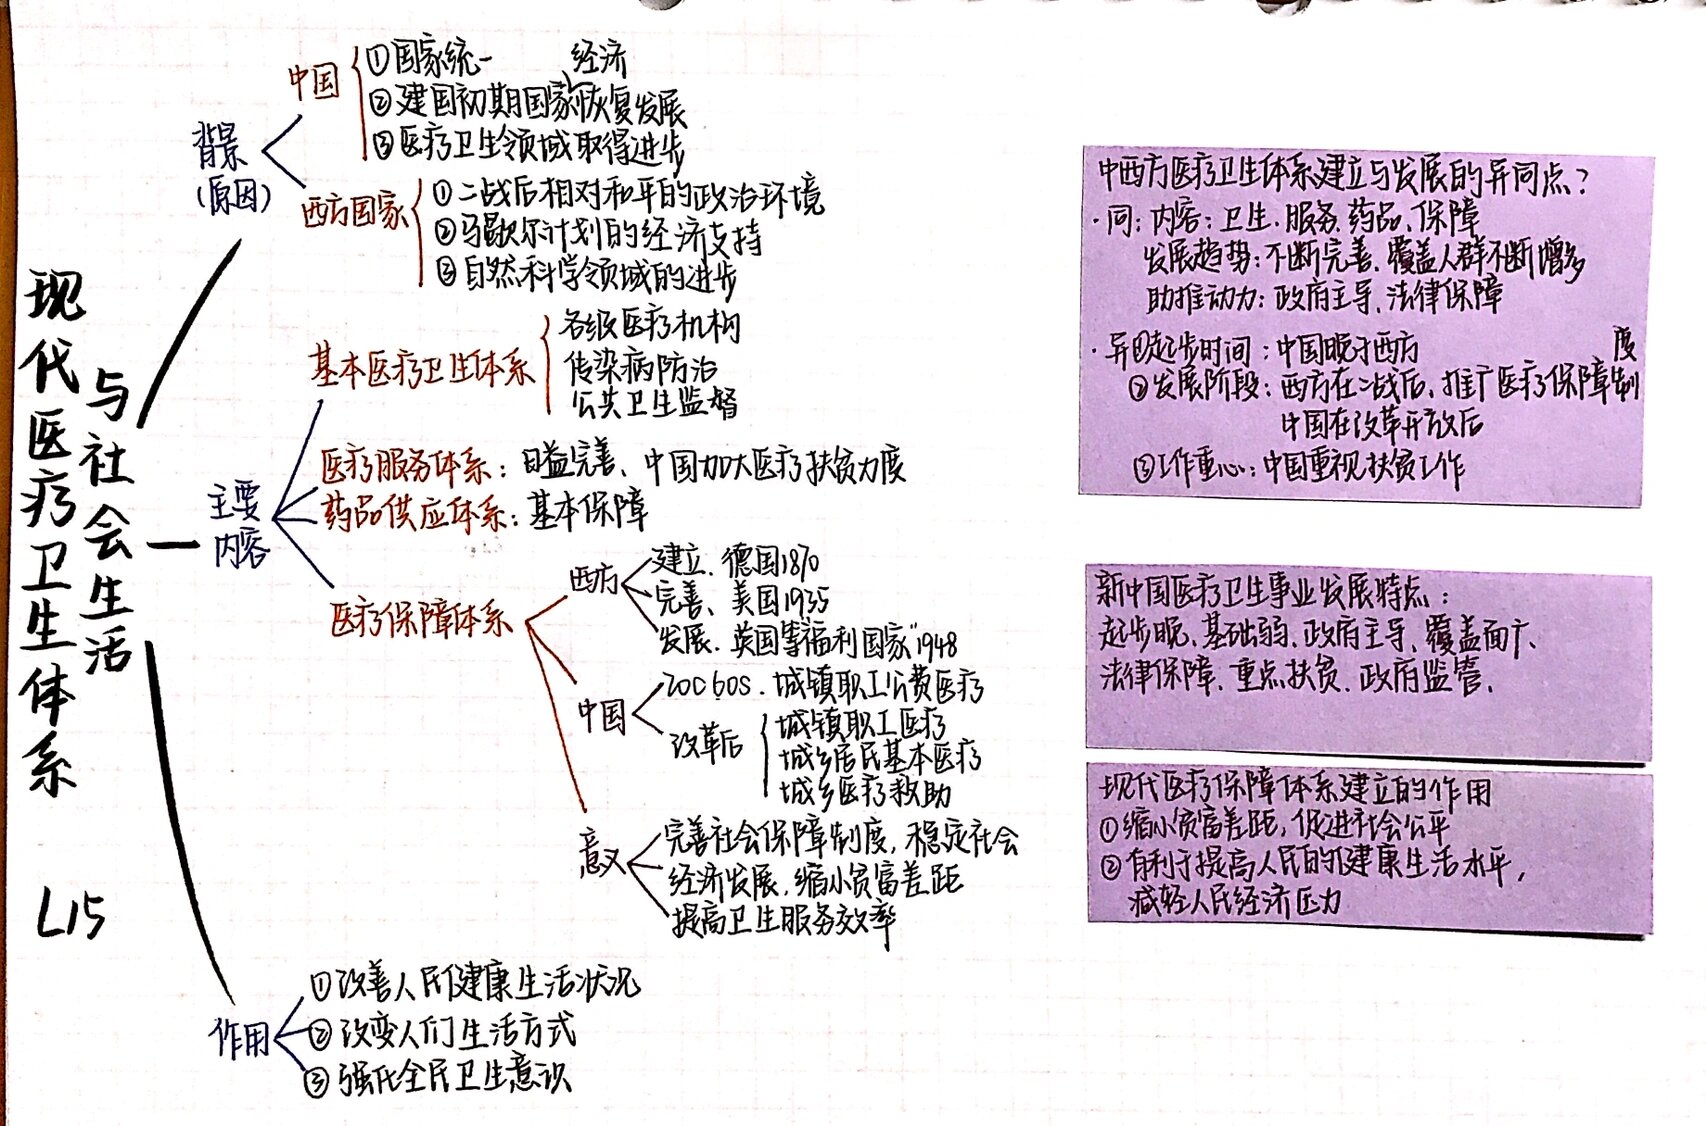 现代医疗卫生体系
与社会生活
L15
背景
(原因)
中国
①国家统一
经济
②建国初期国家恢复发展
③医疗卫生领域取得进步
西方国家
①二战后相对和平的政治环境
②马歇尔计划的经济支持
③自然科学领域的进步
主要
内容
基本医疗卫生体系
各级医疗机构
传染病防治
公共卫生监督
医疗服务体系：日益完善、中国加大医疗扶贫力度
药品供应体系：基本保障
医疗保障体系
西方
建立、德国1870
完善、美国1935
发展、英国等“福利国家”1948
中国
20C60S.城镇职工公费医疗
改革后
城镇职工医疗
城乡居民基本医疗
城乡医疗救助
意义
完善社会保障制度，稳定社会
经济发展，缩小贫富差距
提高卫生服务效率
作用
①改善人民健康生活状况
②改变人们生活方式
③强化全民卫生意识
中西方医疗卫生体系建立与发展的异同点？
·同：内容：卫生、服务、药品、保障
发展趋势：不断完善、覆盖人群不断增多
助推动力：政府主导、法律保障
·异①起步时间：中国晚于西方
度
②发展阶段：西方在二战后，推广医疗保障制
中国在改革开放后
③工作重心：中国重视扶贫工作
新中国医疗卫生事业发展特点：
起步晚、基础弱、政府主导、覆盖面广、
法律保障、重点扶贫、政府监管、
现代医疗保障体系建立的作用
①缩小贫富差距，促进社会公平
②有利于提高人民的健康生活水平，
减轻人民经济压力